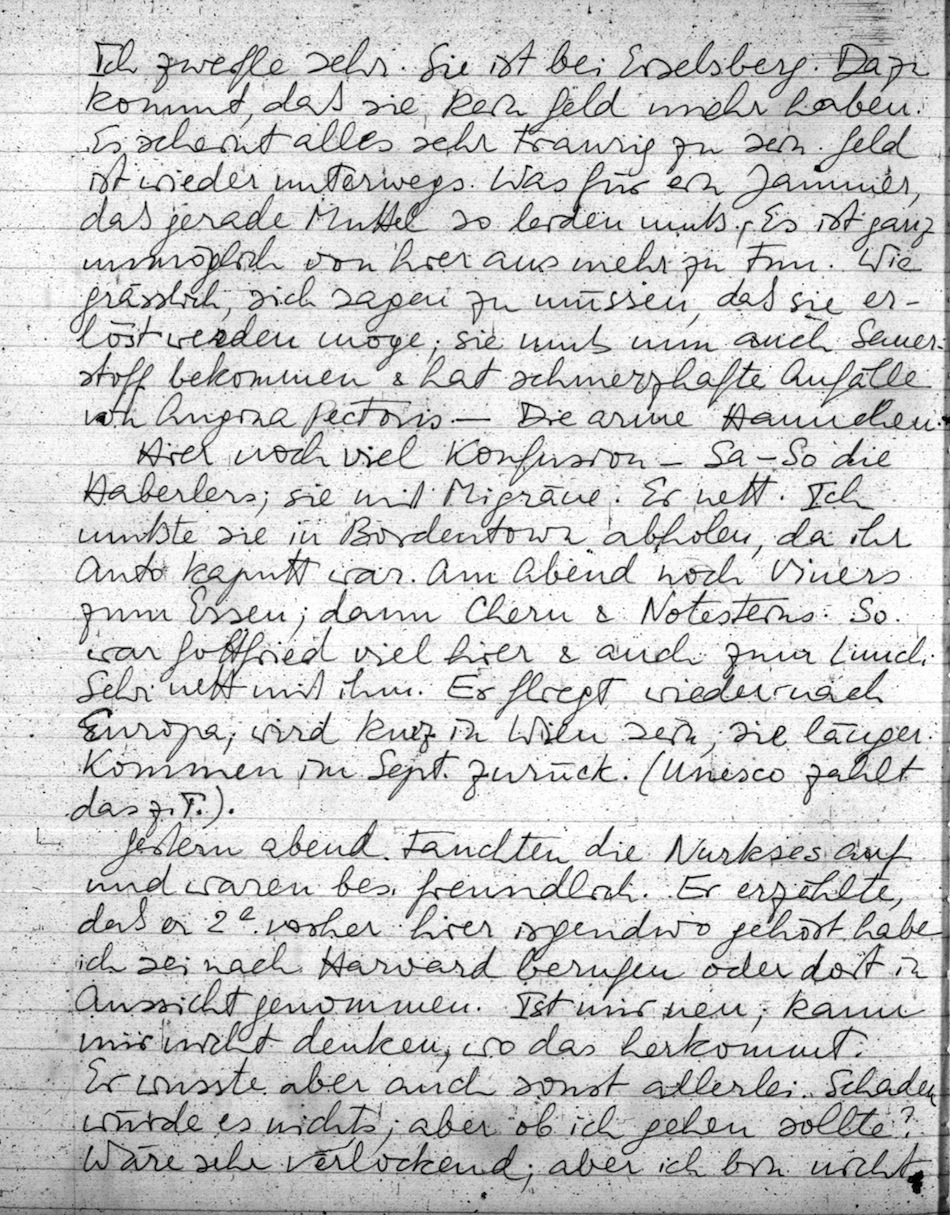 Ich zweifle sehr. Sie ist bei Eiselsberg. Dazu
kommt, daß sie kein Geld mehr haben.
Es scheint alles sehr traurig zu sein. Geld
ist wieder unterwegs. Was für ein Jammer,
daß gerade Muttel so leiden muß. Es ist ganz
unmöglich von hier aus mehr zu tun. Wie
grässlich, sich sagen zu müssen, daß sie er-
löst werden möge; sie muß nun auch Sauer-
stoff bekommen & hat schmerzhafte Anfälle
von Angina Pectoris — Die arme Hannchen.
Hier noch viel Konfusion – Sa–So die
Haberlers; sie mit Migräne. Er nett. Ich
mußte sie in Bordentown abholen, da ihr
Auto kaputt war. Am Abend noch Viners
zum Essen; dann Chern & Notesteins. So.
war Gottfried viel hier & auch zum Lunch.
Sehr nett mit ihm. Er fliegt wieder nach
Europa, wird kurz in Wien sein, sie länger.
Kommen im Sept. zurück. (Unesco zahlt
das z.T.).
Gestern abend tauchten die Nurkses auf
und waren bes. freundlich. Er erzählte,
daß er 2 vorher hier irgendwo gehört habe
ich sei nach Harvard berufen oder dort in
Aussicht genommen. Ist mir neu; kann
mir nicht denken, wo das herkommt.
Er wusste aber auch sonst allerlei. Schaden
würde es nichts, aber ob ich gehen sollte?
Wäre sehr verlockend; aber ich bin nicht